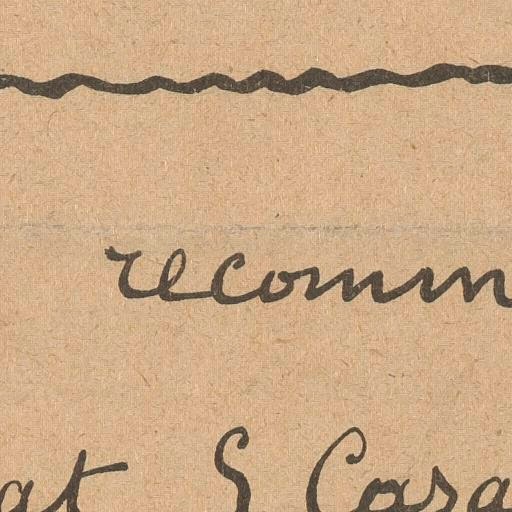 recomm
at & Casa